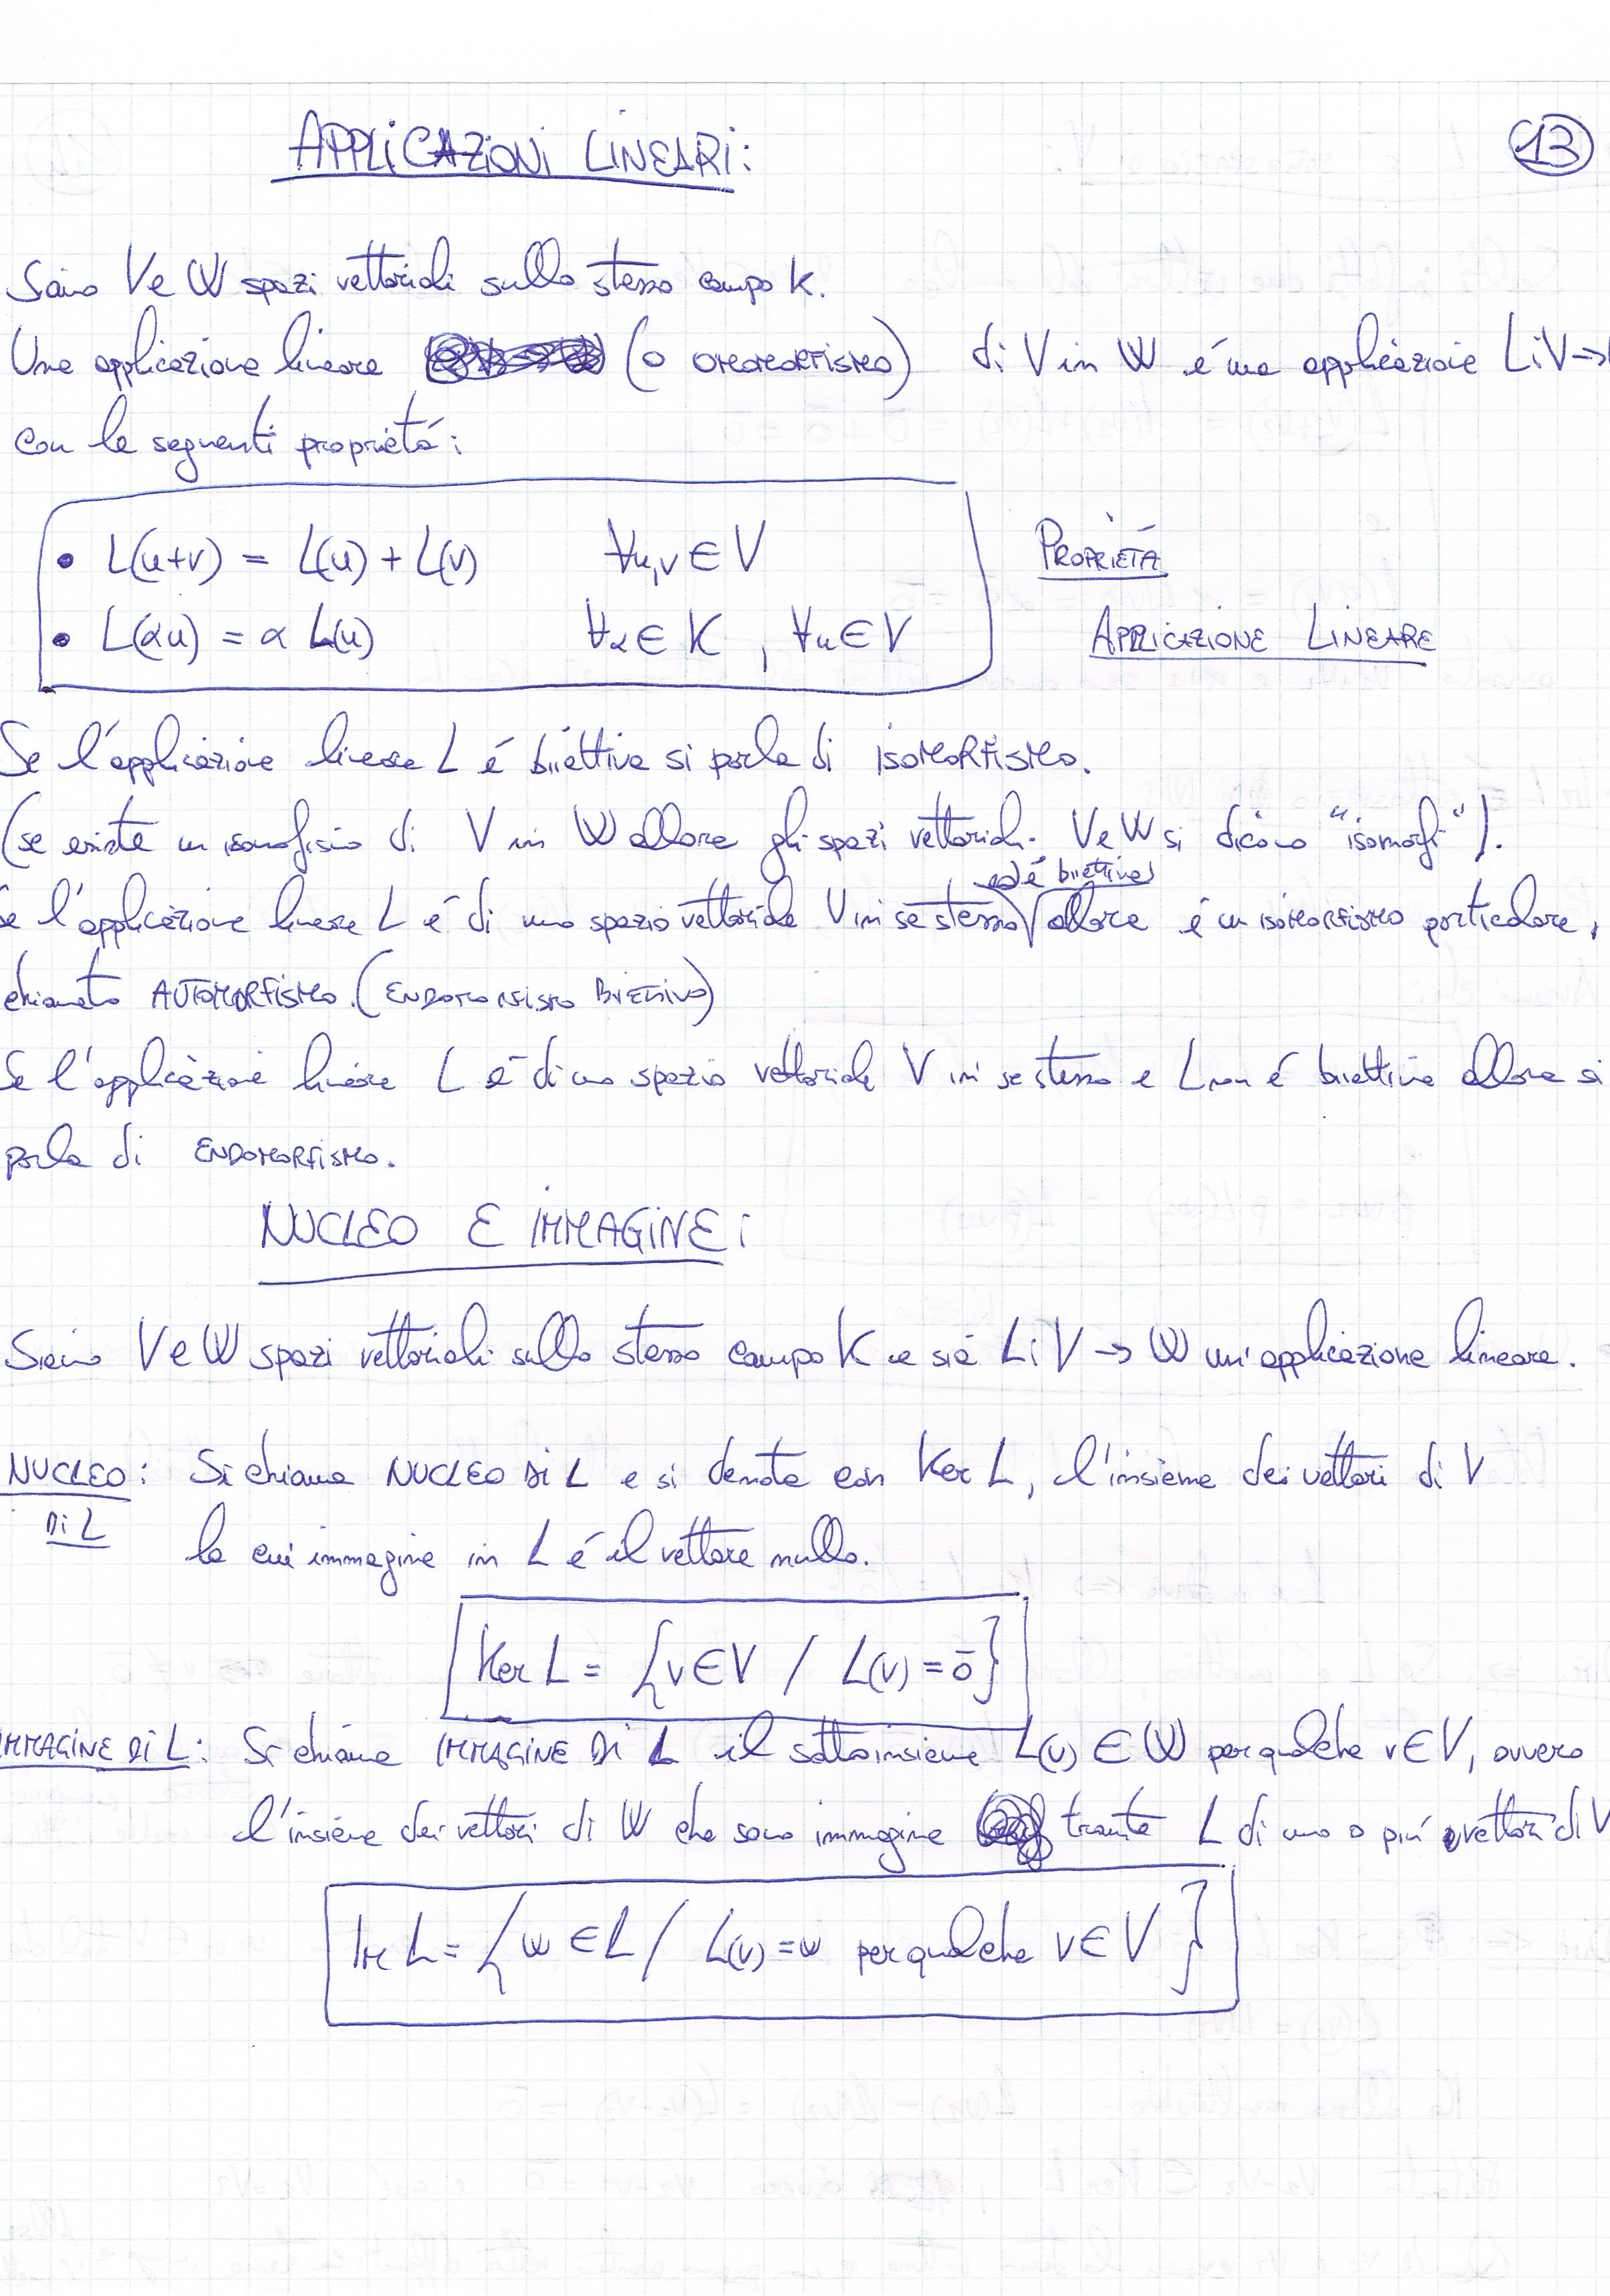 APPLICAZIONI LINEARI:
13
Siano V e W spazi vettoriali sullo stesso campo K.
Una applicazione lineare (o OMOMORFISMO) di V in W é una applicazione L: V →
con le seguenti proprietá:
• L(u+v) = L(u) + L(v) ∀u,v ∈ V
PROPRIETÀ
• L(αu) = α L(u) ∀α ∈ K , ∀u ∈ V
APPLICAZIONE LINEARE
Se l'applicazione lineare L é biiettiva si parla di ISOMORFISMO.
(se esiste un isomorfismo di V in W allora gli spazi vettoriali V e W si dicono "isomorfi").
ed é biettiva
se l'applicazione lineare L é di uno spazio vettoriale V in se stesso allora é un ISOMORFISMO particolare,
chiamato AUTOMORFISMO. (ENDOMORFISMO BIETTIVO)
Se l'applicazione lineare L é di uno spazio vettoriale V in se stesso e L non é biettiva allora si
parla di ENDOMORFISMO.
NUCLEO E IMMAGINE:
Siano V e W spazi vettoriali sullo stesso campo K e sia L: V → W un'applicazione lineare.
NUCLEO: Si chiama NUCLEO DI L e si denota con Ker L, l'insieme dei vettori di V
DI L la cui immagine in L é il vettore nullo.
Ker L = {v ∈ V / L(v) = ō}
IMMAGINE DI L: Si chiama IMMAGINE DI L il sottoinsieme L(v) ∈ W per qualche v ∈ V, ovvero
l'insieme dei vettori di W che sono immagine tramite L di uno o piú vettori di V
Im L = {w ∈ L / L(v) = w per qualche v ∈ V}